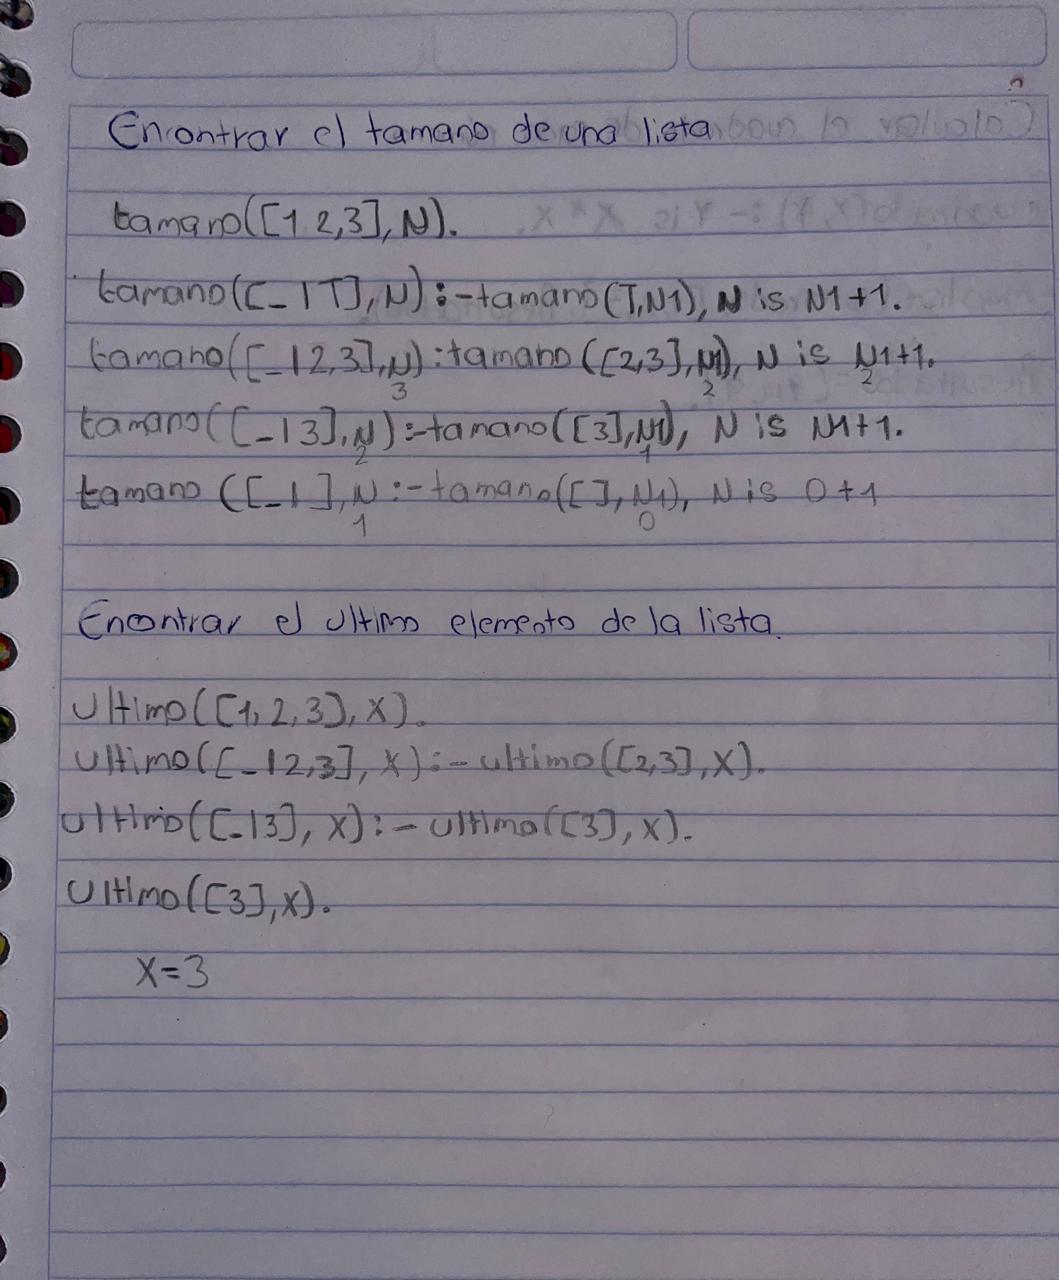 Encontrar el tamano de una lista
tamano([1 2,3],N).
tamano([_|T],N):-tamano(T,N1), N is N1+1.
tamano([_|2,3],N):tamano([2,3],N1), N is N1+1.
3 2 2
tamano([_|3],N):-tamano([3],N1), N is N1+1.
2 1
tamano ([_|],N:-tamano([],N1), N is 0+1
1 0
Encontrar el ultimo elemento de la lista.
Ultimo([1,2,3],X).
Ultimo([_|2,3],X):-ultimo([2,3],X).
ultimo([_|3],X):-ultimo([3],X).
Ultimo([3],X).
X=3